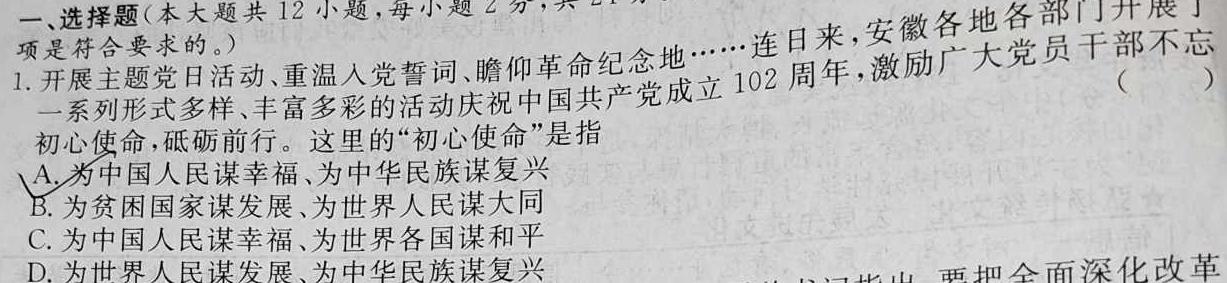 一、选择题(本大题共 12 小题,每小题 2 分,共 24 分
项是符合要求的。)
1. 开展主题党日活动、重温入党誓词、瞻仰革命纪念地……连日来,安徽各地各部门开展了
一系列形式多样、丰富多彩的活动庆祝中国共产党成立 102 周年,激励广大党员干部不忘
初心使命,砥砺前行。这里的“初心使命”是指 ( )
A. 为中国人民谋幸福、为中华民族谋复兴
B. 为贫困国家谋发展、为世界人民谋大同
C. 为中国人民谋幸福、为世界各国谋和平
D. 为世界人民谋发展、为中华民族谋复兴
书记指出,要把全面深化改革